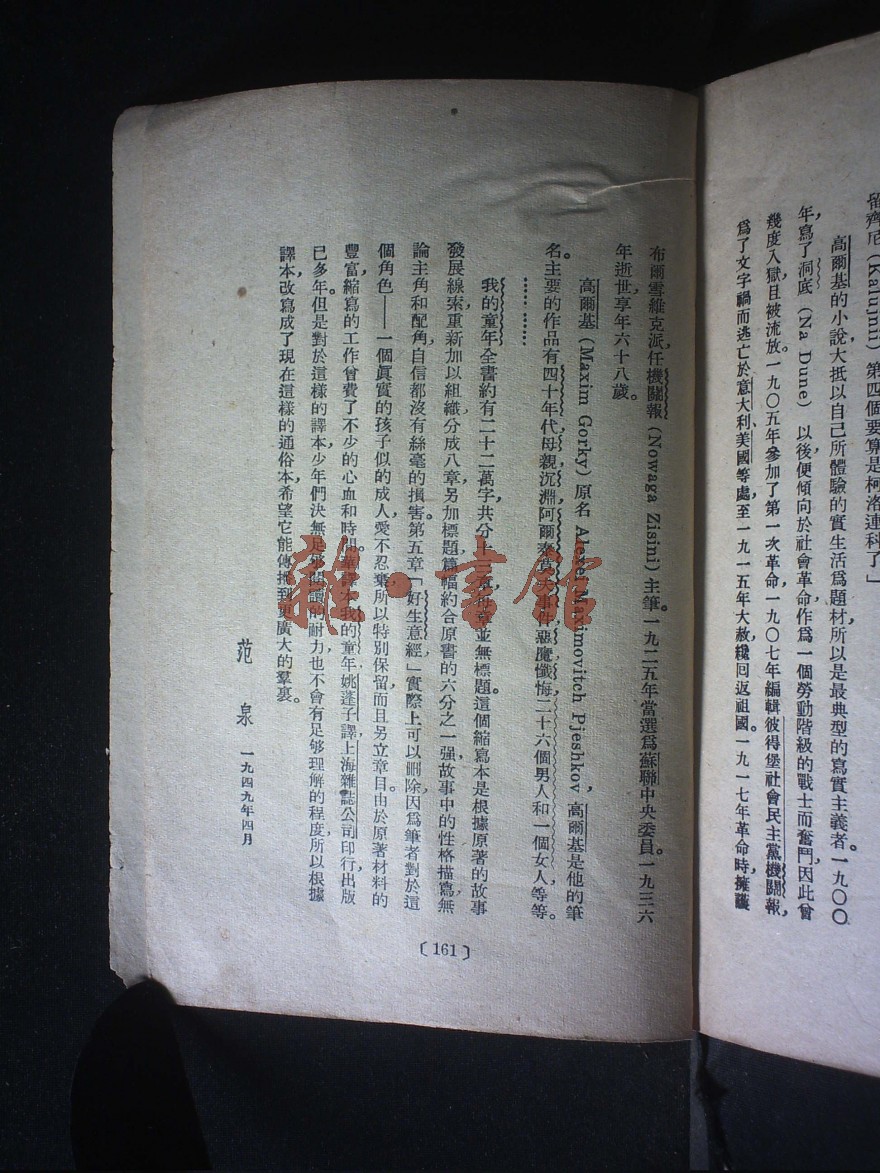 留齊尼(Kalujnii) 第四個要算是柯洛連科了」
高爾基的小說大抵以自己所體驗的實生活爲題材,所以是最典型的寫實主義者。一九〇〇
年,寫了洞底 (Na Dune) 以後便傾向於社會革命,作爲一個勞動階級的戰士而奮鬥,因此曾
幾度入獄,且被流放。一九〇五年參加了第一次革命,一九〇七年編輯彼得堡社會民主黨機關報,
爲了文字禍而逃亡於意大利、美國等處,至一九一五年大赦,纔回返祖國。一九一七年革命時,擁護
布爾雪維克派,任機關報 (Nowaga Zisini) 主筆。一九二五年當選爲蘇聯中央委員。一九三六
年逝世,享年六十八歲。
高爾基 (Maxim Gorky) 原名 Alexei Maximovitch Pjeshkov, 高爾基是他的筆
名。主要的作品有四十年代,母親,沉淵,阿爾泰莫夫事件,惡魔,懺悔,二十六個男人和一個女人等等。
…………
我的童年全書約有二十二萬字,共分十三章,每章並無標題。這個縮寫本是根據原著的故事
發展線索,重新加以組織,分成八章,另加標題,篇幅約合原書的六分之一强,故事中的性格描寫,無
論主角和配角,自信都沒有絲毫的損害。第五章「好生意經」實際上可以刪除,因爲筆者對於這
個角色——一個眞實的孩子似的成人,愛不忍棄,所以特別保留,而且另立章目。由於原著材料的
豐富,縮寫的工作曾費了不少的心血和時間。華譯本我的童年,姚蓬子譯,上海雜誌公司印行,出版
已多年。但是對於這樣的譯本,少年們決無足够閱讀的耐力,也不會有足够理解的程度,所以根據
譯本,改寫成了現在這樣的通俗本,希望它能傳播到更廣大的羣裏。
范 泉 一九四九年四月
〔161〕
雜·書館